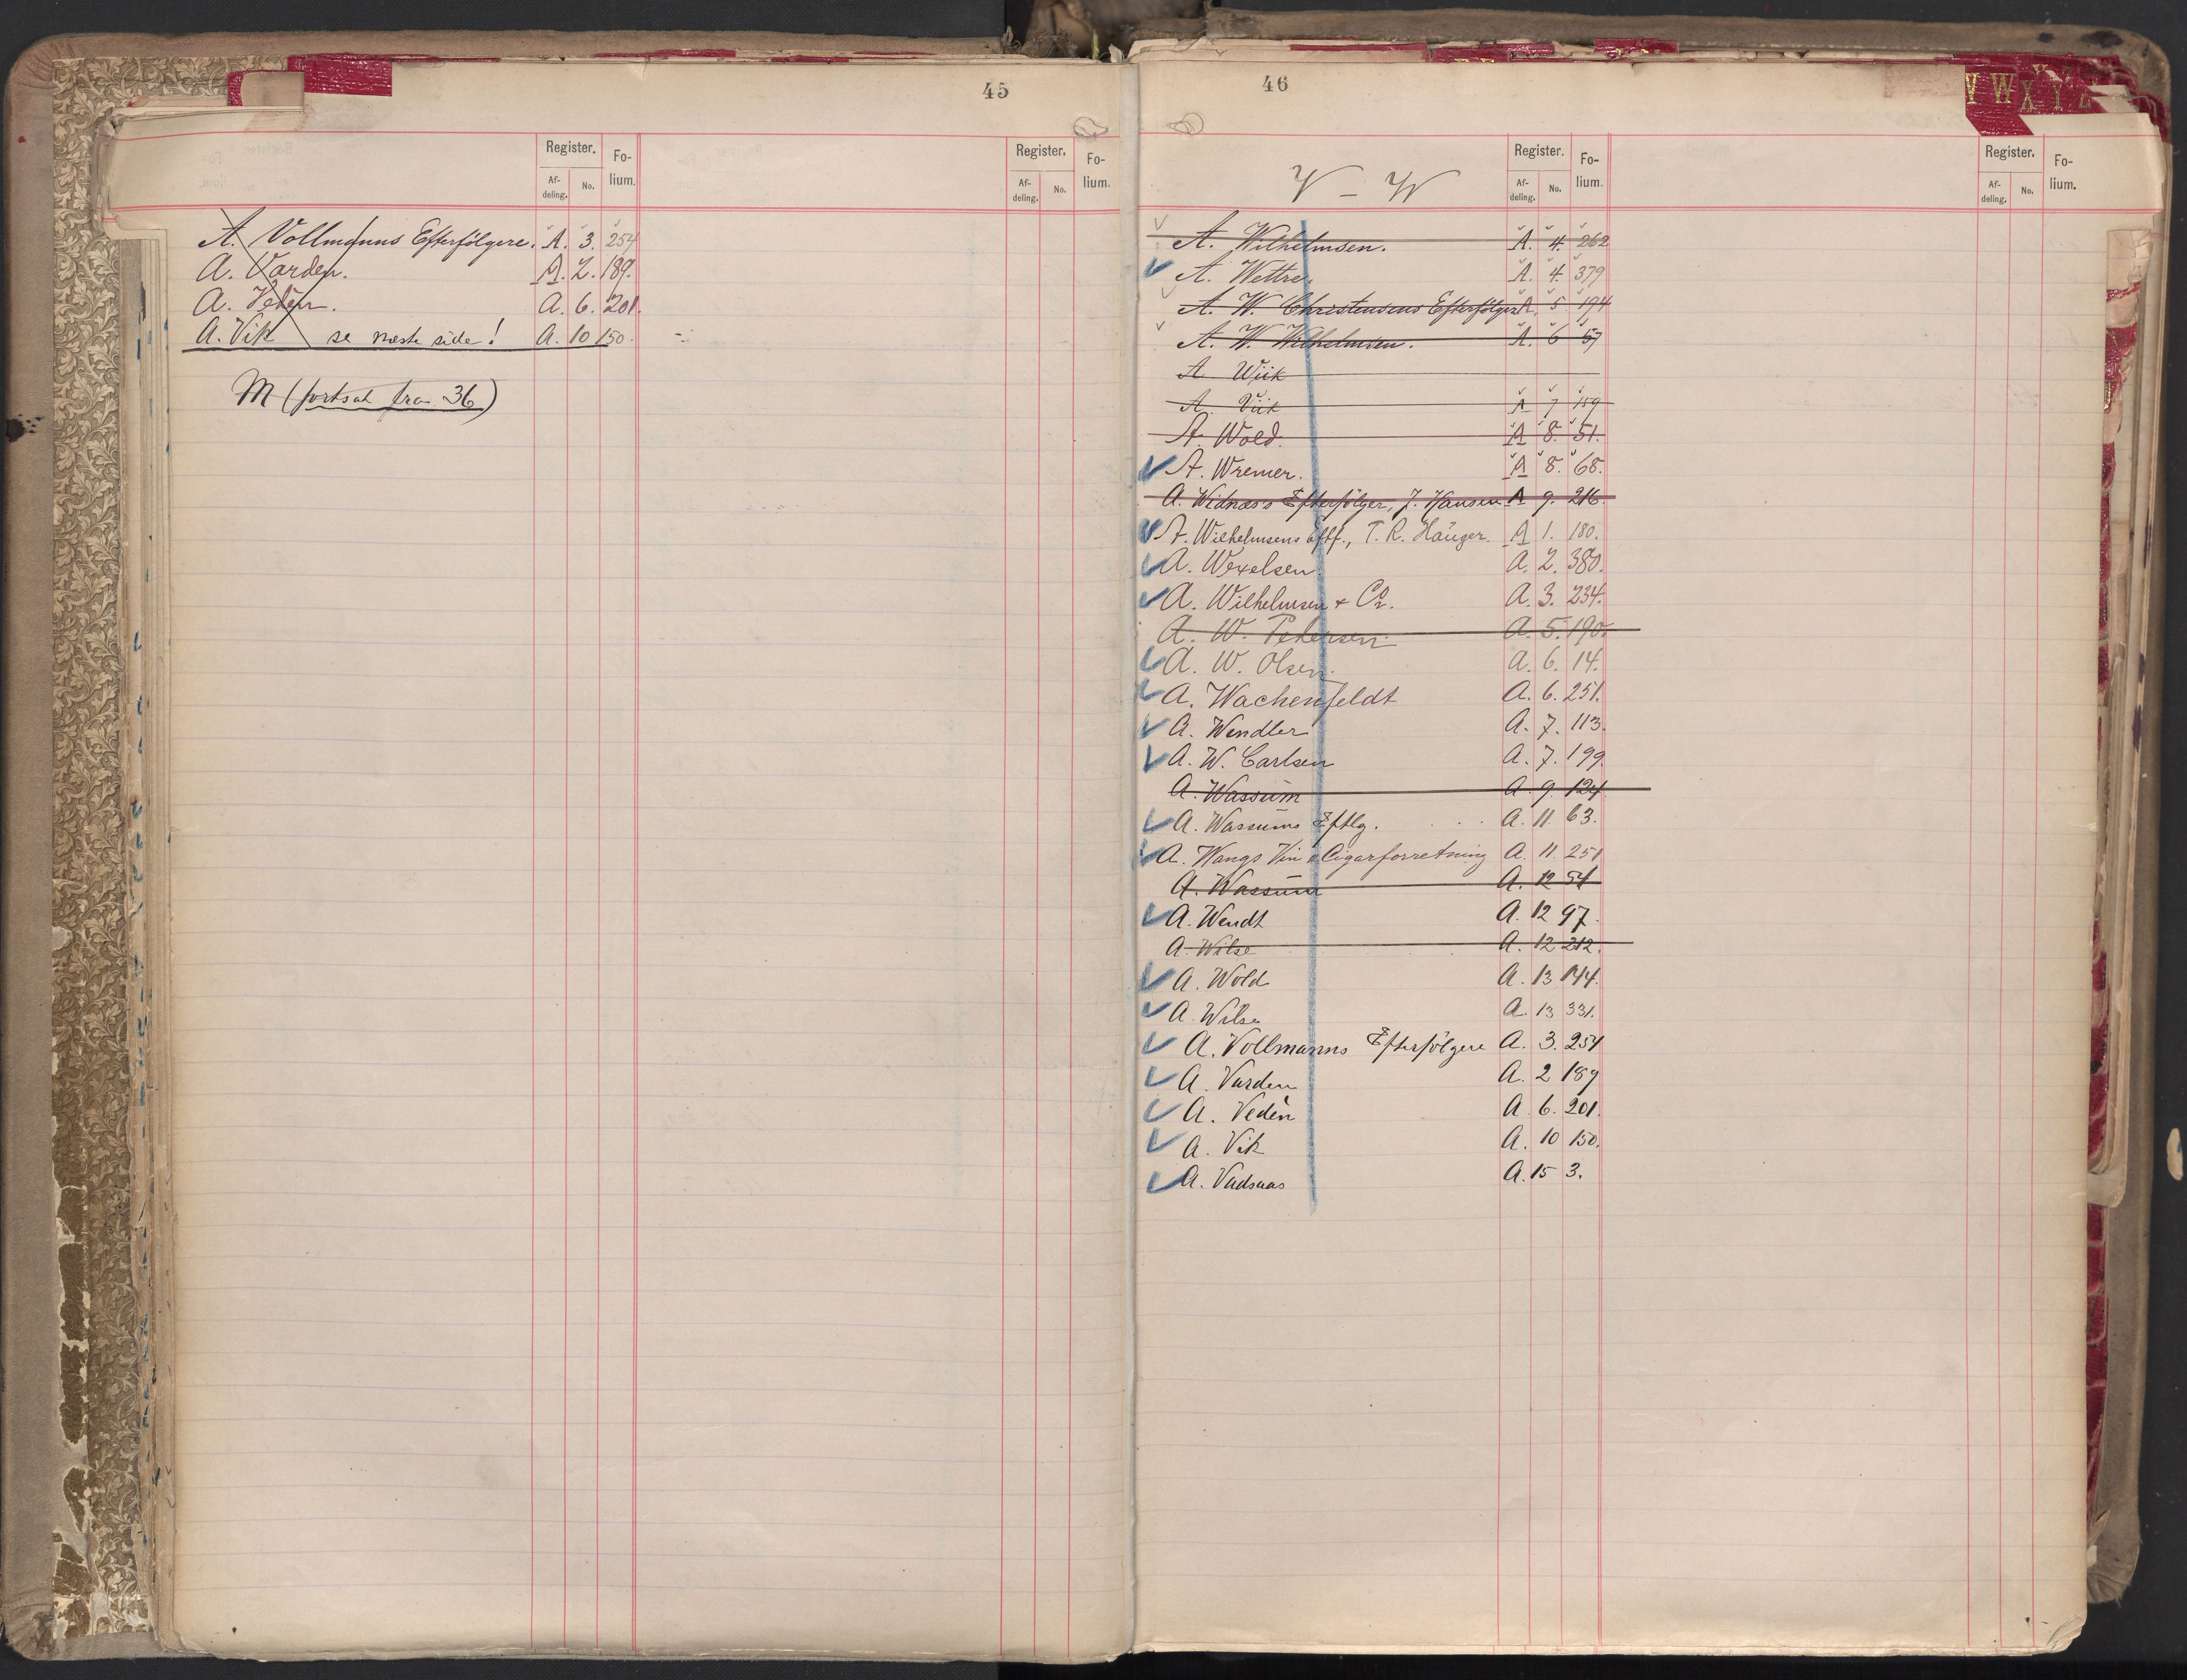 45
Register. Fo-lium. Register. Fo-lium.
Af-deling. No. Af-deling. No.
A. Vollmanns Efterfölgere. A. 3. 254
A. Varden. A. 2. 189.
A. Vedèn. A. 6. 201.
A. Vik se næste side! A. 10 150.
M (fortsat fra 36)
46
V W X Y Z
Register. Fo-lium. Register. Fo-lium.
Af-deling. No. Af-deling. No.
V - W
A. Wilhelmsen. A. 4. 262
A. Wettre. A. 4. 379
A. W. Christensens Efterfölger A. 5 194
A. W. Wilhelmsen. A. 6 57
A Wiik
A. Viik A 7 159
A. Wold. A 8. 51.
A. Wremer. A 8. 68.
A. Widnæs's Efterfölger, J. Hansen A 9. 216.
A. Wilhelmsens eftf., T. R. Hauger. A 1. 180.
A. Wexelsen A. 2. 380.
A. Wilhelmsen & Co. A. 3. 234.
A. W. Pedersen. A. 5. 190.
A. W. Olsen. A. 6. 14.
A. Wachenfeldt A. 6. 251.
A. Wendler A. 7. 113.
A. W. Carlsen A. 7. 199
A. Wassum A. 9. 124
A. Wassums Eftlg. A. 11. 63.
A. Wangs Vin & Cigarforretning A. 11. 251
A. Wassum A. 12 54
A. Wendt A. 12 97.
A. Wilse A. 12 212.
A. Wold A. 13 144.
A. Wilse A. 13 331.
A. Vollmanns Efterfölgere A. 3. 254
A. Varden A. 2 189
A. Vedèn A. 6. 201.
A. Vik A. 10 150.
A. Vadsaas A. 15 3.